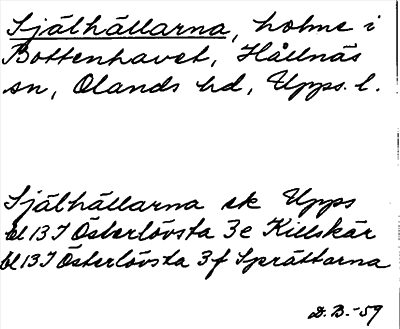 Själhällarna, holme i
Bottenhavet, Hållnäs
sn, Olands hd, Upps. l.
Själhällarna ek Upps
bl 13 I Österlövsta 3e Killskär
bl 13 I Österlövsta 3f Sprättarna
D. B. -59